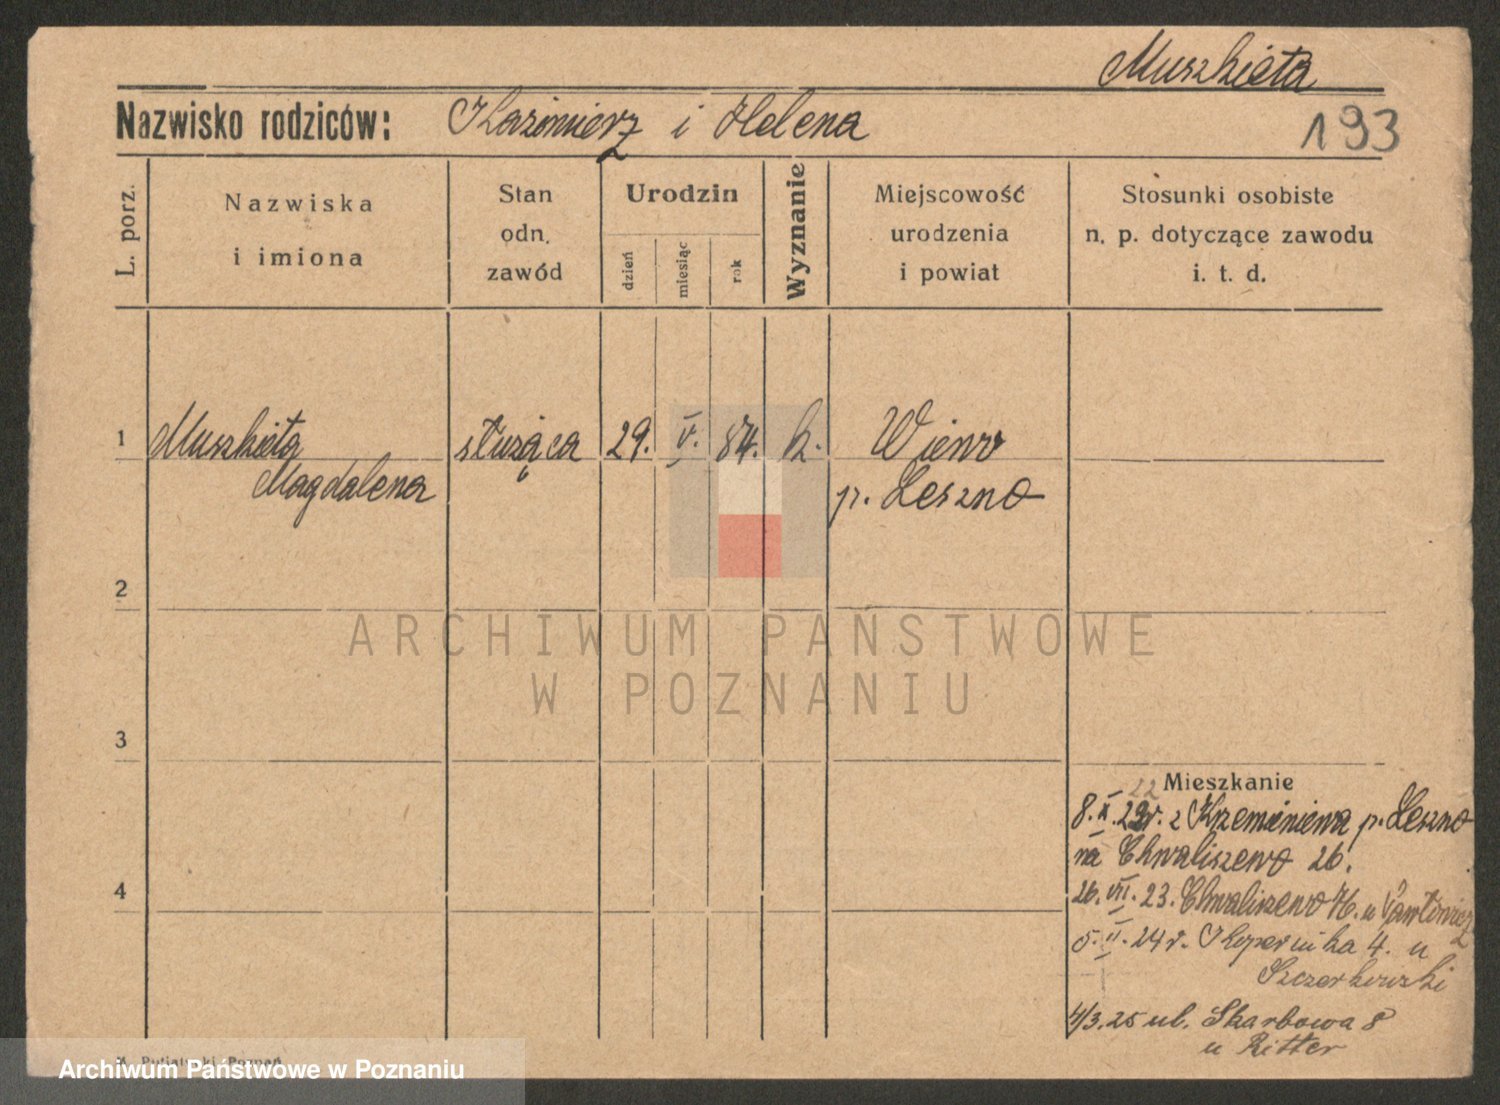 Muszkieta
Nazwisko rodziców: Kazimierz i Helena
193
L. porz.
Nazwiska
i imiona
Stan
odn.
zawód
Urodzin
dzień
miesiąc
rok
Wyznanie
Miejscowość
urodzenia
i powiat
Stosunki osobiste
n. p. dotyczące zawodu
i. t. d.
1 Muszkieta służąca 29. V. 84. k. Wienro
Magdalena p. Leszno
2
ARCHIWUM PAŃSTWOWE
W POZNANIU
3
Mieszkanie
22
8. z Krzemieniewa p. Leszno
na Chwaliszewo 26.
26. VII. 23. Chwaliszewo u Pawłowicz
5. 24 r. Kopernika 4. u
Szczerkowski
4/3.25 ul. Skarbowa 8
u Ritter
4
Poznań
Archiwum Państwowe w Poznaniu